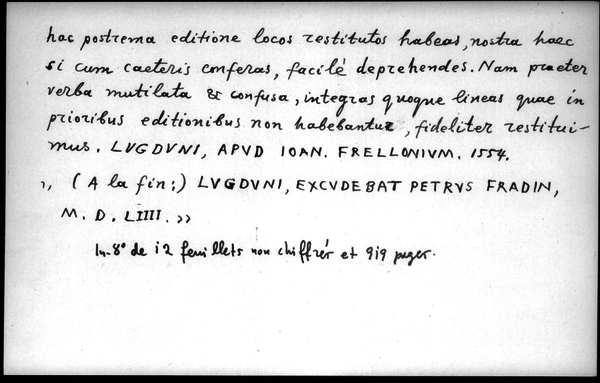 hac postrema editione locos restitutos habeas, nostra haec
si cum caeteris conferas, facilè deprehendes. Nam praeter
verba mutilata & confusa, integras quoque lineas quae in
prioribus editionibus non habebantur, fideliter restitui-
mus. LVGDVNI, APVD IOAN. FRELLONIVM. 1554.
,, (A la fin:) LVGDVNI, EXCVDEBAT PETRVS FRADIN,
M. D. LIIII. >>
In-8° de 12 feuillets non chiffrés et 919 pages.